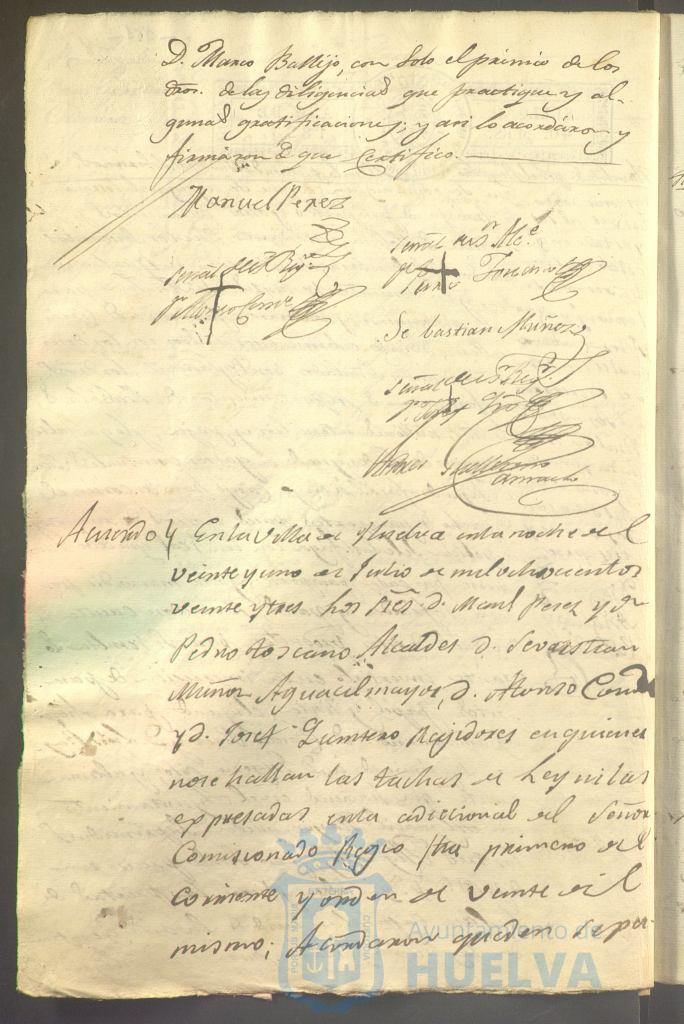 D. Marco Ballijo, con Solo el prémio de los
dros. de las diligencias que practique y al-
gunas gratificaciones; y asi lo acordáron y
firmáron de que Certifico.
Manuel Perez
Señal del Sr. Alce.
Señal del Sr. Regr.
Toscano
Sebastian Muñoz
Señal del Sr. Regr.
Camacho
Acuerdo y En la Villa de Huelva en la noche del
veinte y uno de Julio de mil ochocientos
veinte y tres los Sres. D. Manl. Perez y Dn.
Pedro toscano Alcaldes D. Sevastian
Muñoz Aguacil mayor, D. Alonso
y D. Josef Quintero Rejidores en quienes
no se hallan las tachas de Ley ni las
expresadas en la adiccional del Señor
Comisionado Regio fha primero del
corriente y orden de veinte del
mismo; Acordaron queden separ-
Ayuntamiento de
HUELVA